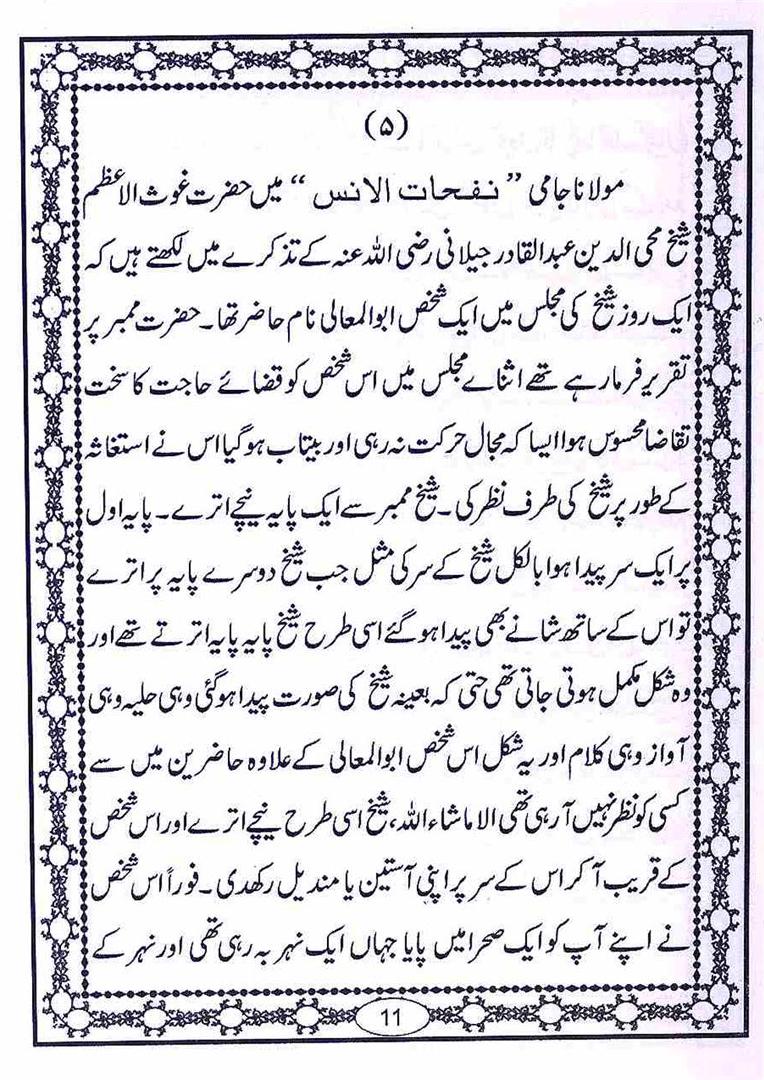 (۵)
مولانا جامی ”نفحات الانس“ میں حضرت غوث الاعظم
شیخ محی الدین عبدالقادر جیلانی رضی اللہ عنہ کے تذکرے میں لکھتے ہیں کہ
ایک روز شیخ کی مجلس میں ایک شخص ابوالمعالی نام حاضر تھا۔ حضرت ممبر پر
تقریر فرما رہے تھے اثنائے مجلس میں اس شخص کو قضائے حاجت کا سخت
تقاضا محسوس ہوا ایسا کہ مجال حرکت نہ رہی اور بیتاب ہو گیا اس نے استغاثہ
کے طور پر شیخ کی طرف نظر کی۔ شیخ ممبر سے ایک پایہ نیچے اترے۔ پایہ اول
پر ایک سر پیدا ہوا بالکل شیخ کے سر کی مثل جب شیخ دوسرے پایہ پر اترے
تو اس کے ساتھ شانے بھی پیدا ہو گئے اسی طرح شیخ پایہ پایہ اترتے تھے اور
وہ شکل مکمل ہوتی جاتی تھی حتی کہ بعینہ شیخ کی صورت پیدا ہو گئی وہی حلیہ وہی
آواز وہی کلام اور یہ شکل اس شخص ابوالمعالی کے علاوہ حاضرین میں سے
کسی کو نظر نہیں آرہی تھی الا ماشاء اللہ، شیخ اسی طرح نیچے اترے اور اس شخص
کے قریب آ کر اس کے سر پر اپنی آستین یا مندیل رکھدی۔ فوراً اس شخص
نے اپنے آپ کو ایک صحرا میں پایا جہاں ایک نہر بہ رہی تھی اور نہر کے
11